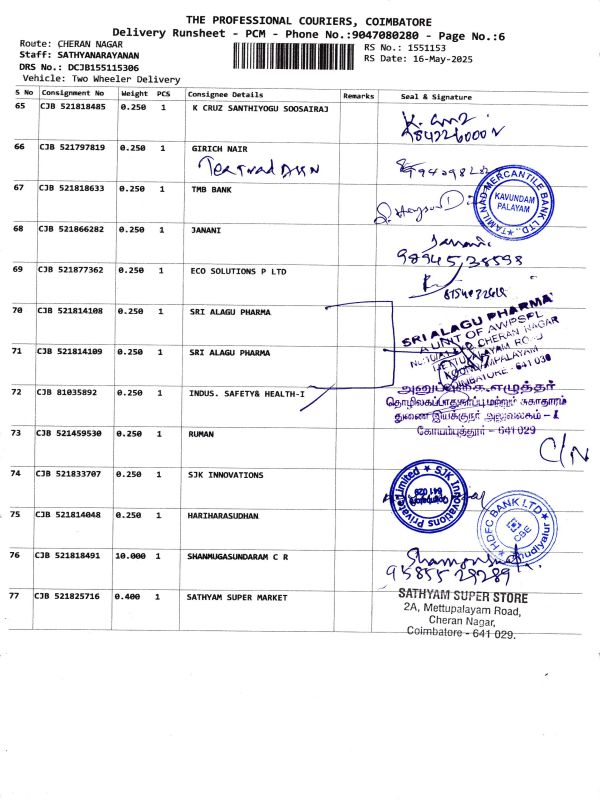 THE PROFESSIONAL COURIERS, COIMBATORE
Delivery Runsheet - PCM - Phone No.:9047080280 - Page No.:6
Route: CHERAN NAGAR
Staff: SATHYANARAYANAN
DRS No.: DCJB155115306
Vehicle: Two Wheeler Delivery
RS No.: 1551153
RS Date: 16-May-2025
S No Consignment No Weight PCS Consignee Details Remarks Seal & Signature
65 CJB 521818485 0.250 1 K CRUZ SANTHIYOGU SOOSAIRAJ
66 CJB 521797819 0.250 1 GIRICH NAIR
67 CJB 521818633 0.250 1 TMB BANK
TAMILNAD MERCANTILE BANK LTD.,
KAVUNDAM
PALAYAM
68 CJB 521866282 0.250 1 JANANI
Janani
9894538593
69 CJB 521877362 0.250 1 ECO SOLUTIONS P LTD
70 CJB 521814108 0.250 1 SRI ALAGU PHARMA
SRI ALAGU PHARMA
A UNIT OF AWPSPL
71 CJB 521814109 0.250 1 SRI ALAGU PHARMA
72 CJB 81035892 0.250 1 INDUS. SAFETY& HEALTH-I
அனுப்புகை எழுத்தர்
தொழிலகப்பாதுகாப்பு மற்றும் சுகாதாரம்
துணை இயக்குநர் அலுவலகம் - I
கோயம்புத்தூர் - 641 029
73 CJB 521459530 0.250 1 RUMAN
C/N
74 CJB 521833707 0.250 1 SJK INNOVATIONS
SJK Innovations Private Limited
Coimbatore
641 029
75 CJB 521814048 0.250 1 HARIHARASUDHAN
HDFC BANK LTD
CBE
76 CJB 521818491 10.000 1 SHANMUGASUNDARAM C R
9585529289
77 CJB 521825716 0.400 1 SATHYAM SUPER MARKET
SATHYAM SUPER STORE
2A, Mettupalayam Road,
Cheran Nagar,
Coimbatore - 641 029.